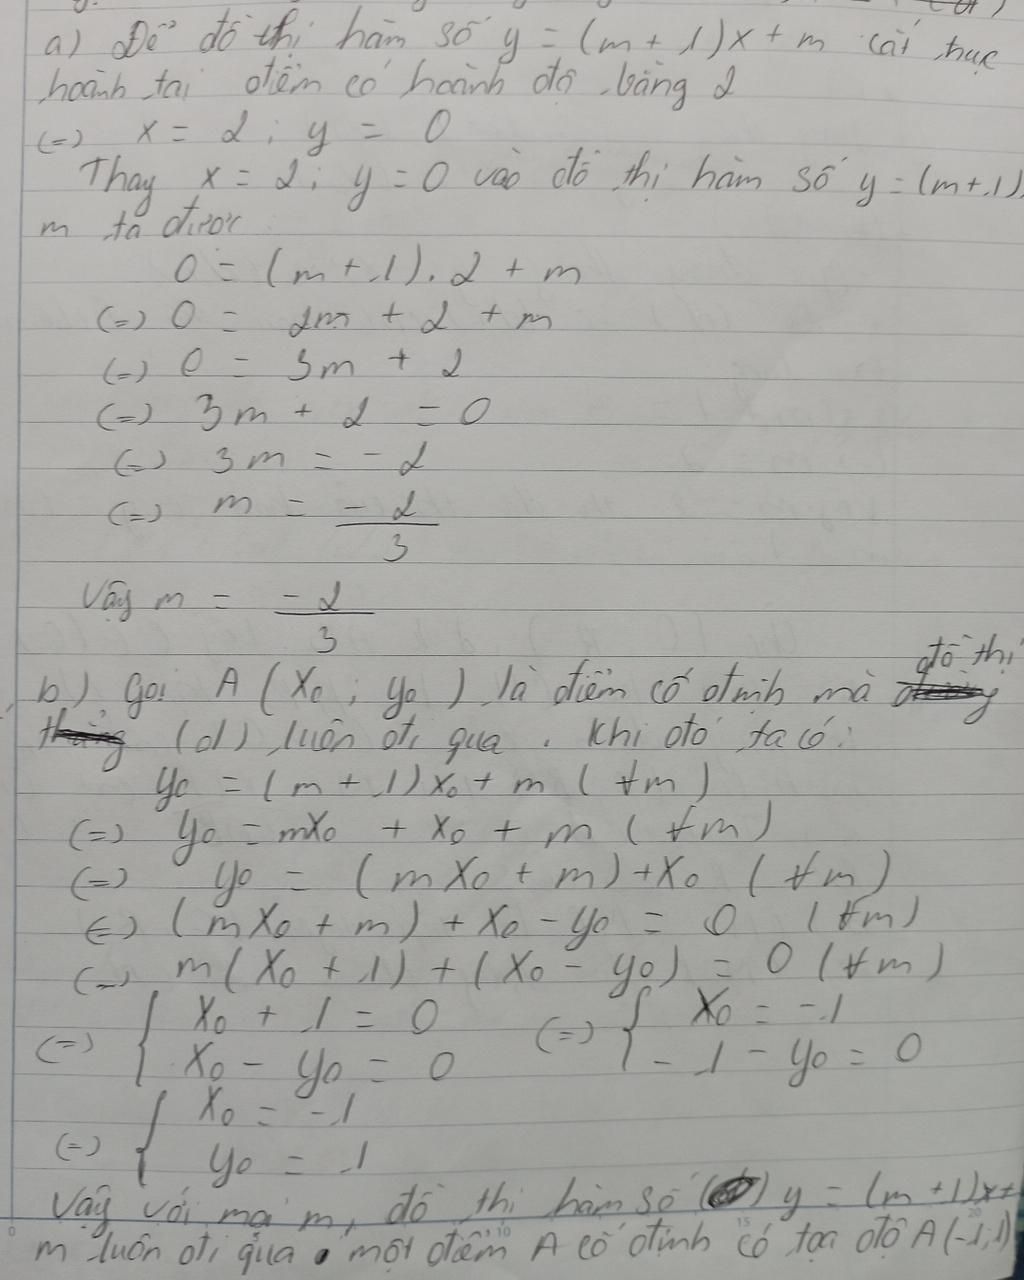 a) Để đồ thị hàm số y = (m + 1)x + m cắt trục
hoành tại điểm có hoành độ bằng 2
(=) x = 2 ; y = 0
Thay x = 2 ; y = 0 vào đồ thị hàm số y = (m+1)
m ta được
0 = (m + 1) . 2 + m
(=) 0 = 2m + 2 + m
(=) 0 = 3m + 2
(=) 3m + 2 = 0
(=) 3m = -2
(=) m = -2/3
Vậy m = -2/3
b) Gọi A (x0 ; y0) là điểm cố định mà đồ thị
(d) luôn đi qua . Khi đó ta có :
y0 = (m + 1)x0 + m (∀m)
(=) y0 = mx0 + x0 + m (∀m)
(=) y0 = (mx0 + m) + x0 (∀m)
(=) (mx0 + m) + x0 - y0 = 0 (∀m)
(=) m(x0 + 1) + (x0 - y0) = 0 (∀m)
(=) { x0 + 1 = 0 (=) { x0 = -1
x0 - y0 = 0 -1 - y0 = 0
(=) { x0 = -1
y0 = 1
Vậy với mọi m, đồ thị hàm số y = (m+1)x+
m luôn đi qua một điểm A cố định có tọa độ A(-1;1)